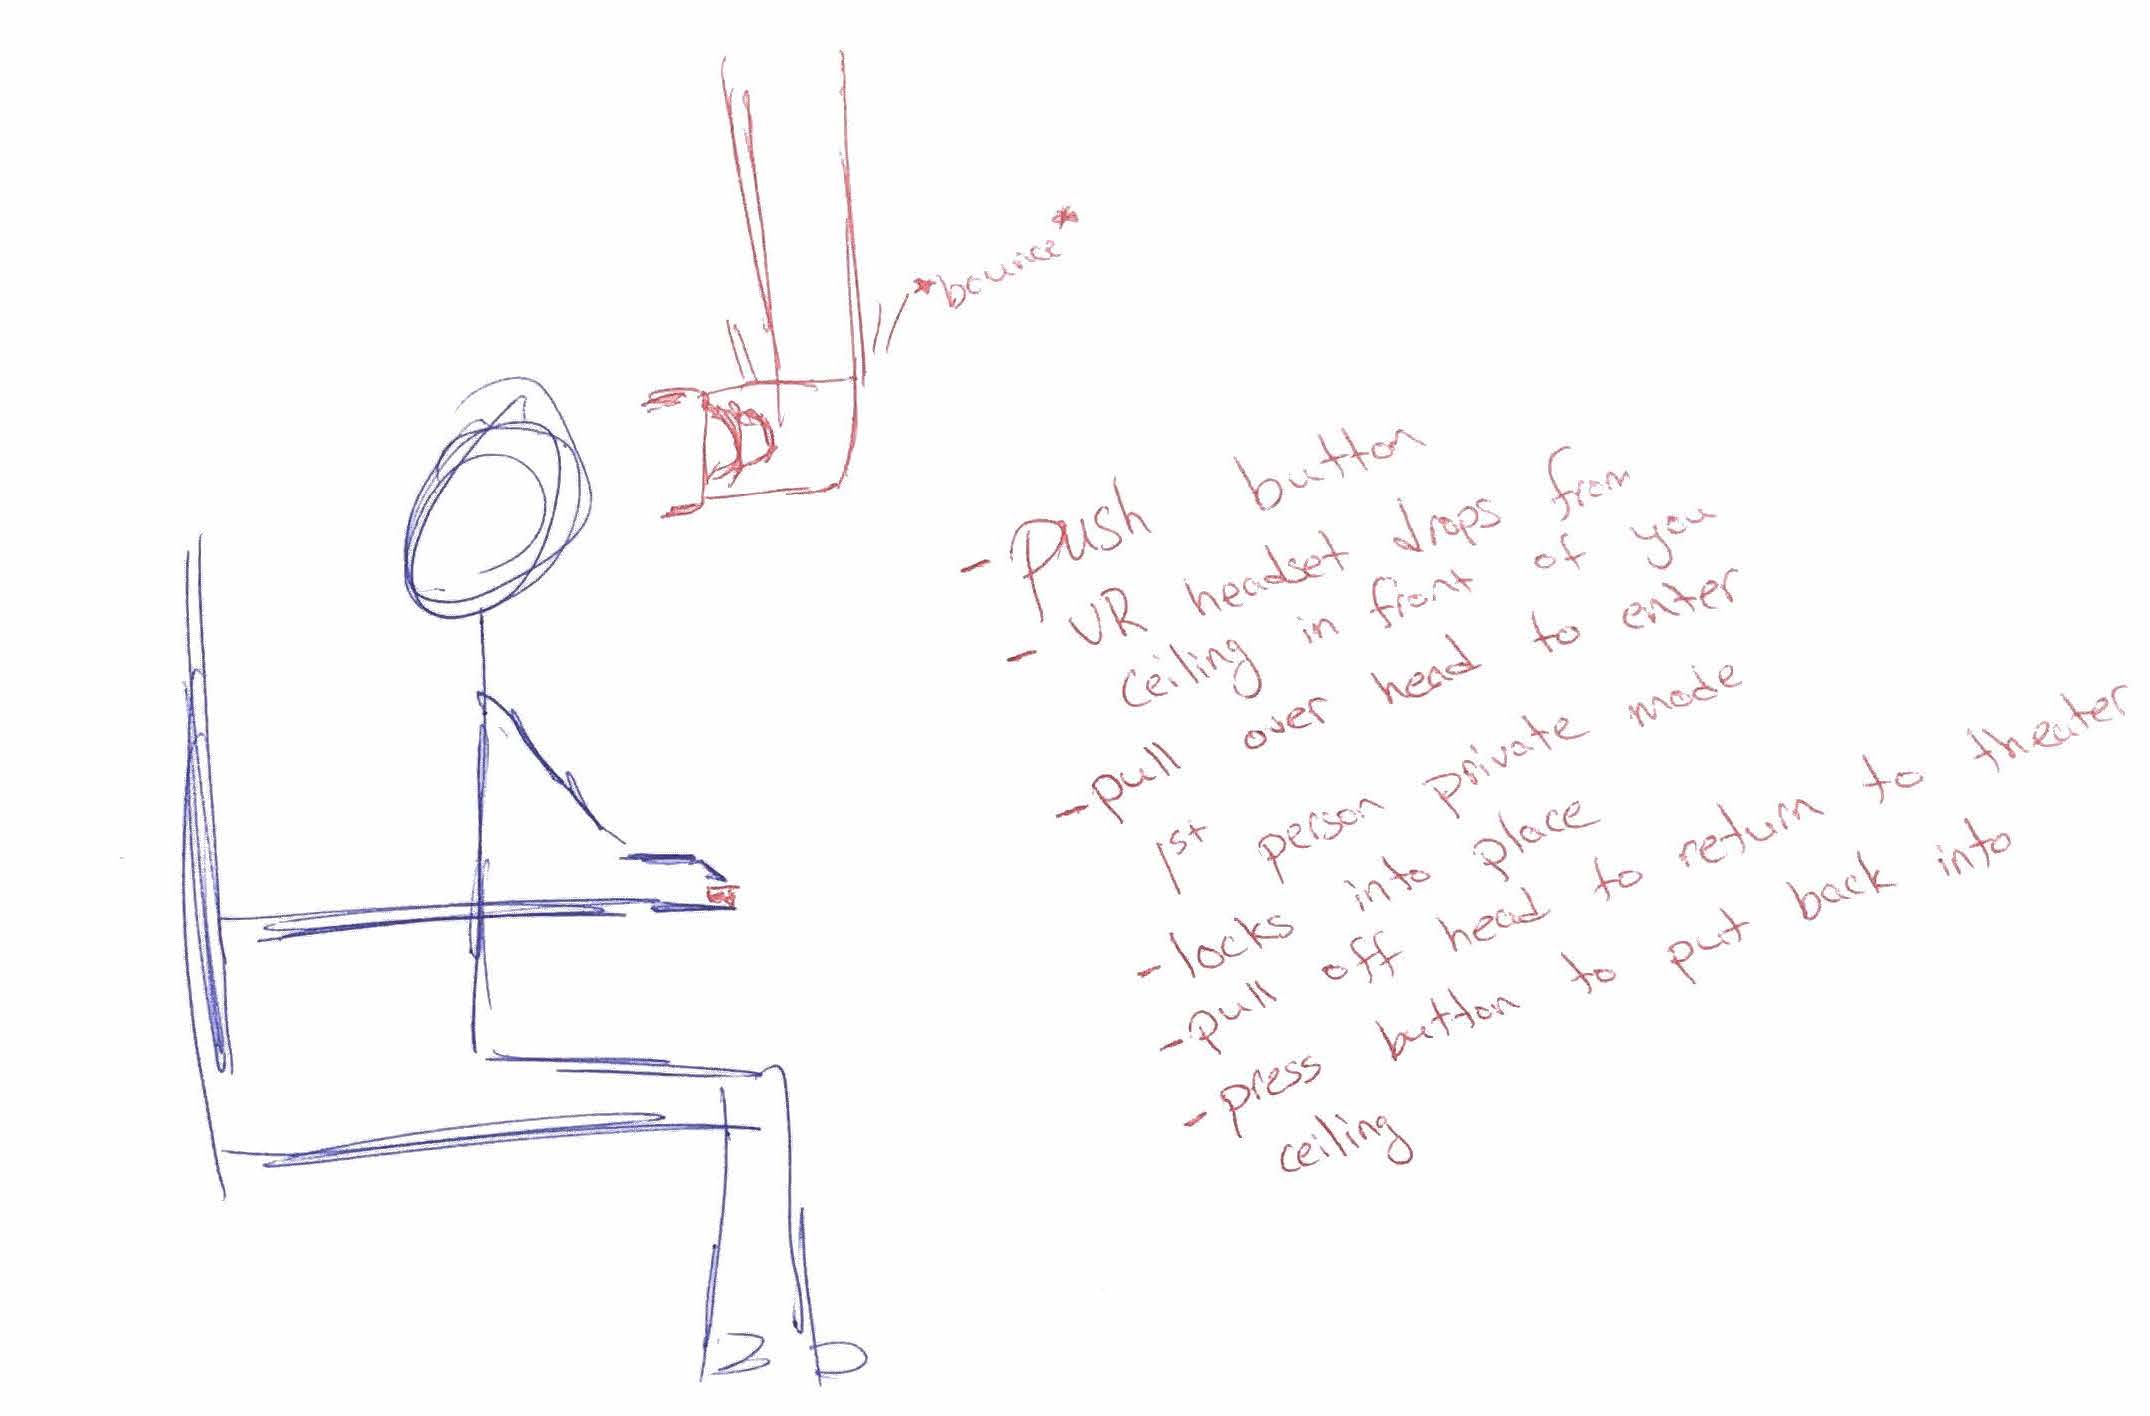 *bounce*
- push button
- VR headset drops from
ceiling in front of you
- pull over head to enter
1st person private mode
- locks into place
- pull off head to return to theater
- press button to put back into
ceiling